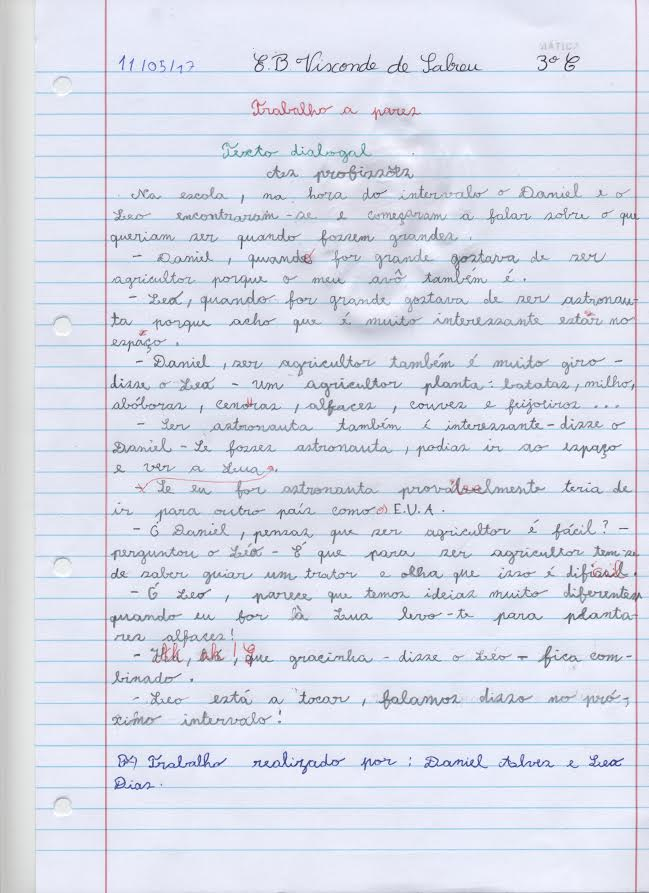 MÁTICA
11/05/17 E.B Visconde de Sabreu 3º C
Trabalho a pares
Texto dialogal
As profissões
Na escola, na hora do intervalo o Daniel e o
Leo encontraram-se e começaram a falar sobre o que
queriam ser quando fossem grandes.
- Daniel, quando for grande gostava de ser
agricultor porque o meu avô também é.
- Leo, quando for grande gostava de ser astronau-
ta porque acho que é muito interessante estar no
espaço.
- Daniel, ser agricultor também é muito giro -
disse o Leo - um agricultor planta: batatas, milho,
abóboras, cenoras, alfaces, couves e feijoeiros ...
- Ser astronauta também é interessante - disse o
Daniel - Se fosses astronauta, podias ir ao espaço
e ver a Lua.
Se eu for astronauta provavelmente teria de
ir para outro país como o E.U.A.
- Ó Daniel, pensas que ser agricultor é fácil? -
perguntou o Léo - É que para ser agricultor tem-se
de saber guiar um trator e olha que isso é difícil.
- Ó Leo, parece que temos ideias muito diferentes,
quando eu for à Lua levo-te para planta-
res alfaces!
- Ah, ah! Que gracinha - disse o Léo - fica com-
binado.
- Leo está a tocar, falamos disso no pró-
ximo intervalo!
Trabalho realizado por: Daniel Alves e Leo
Dias.